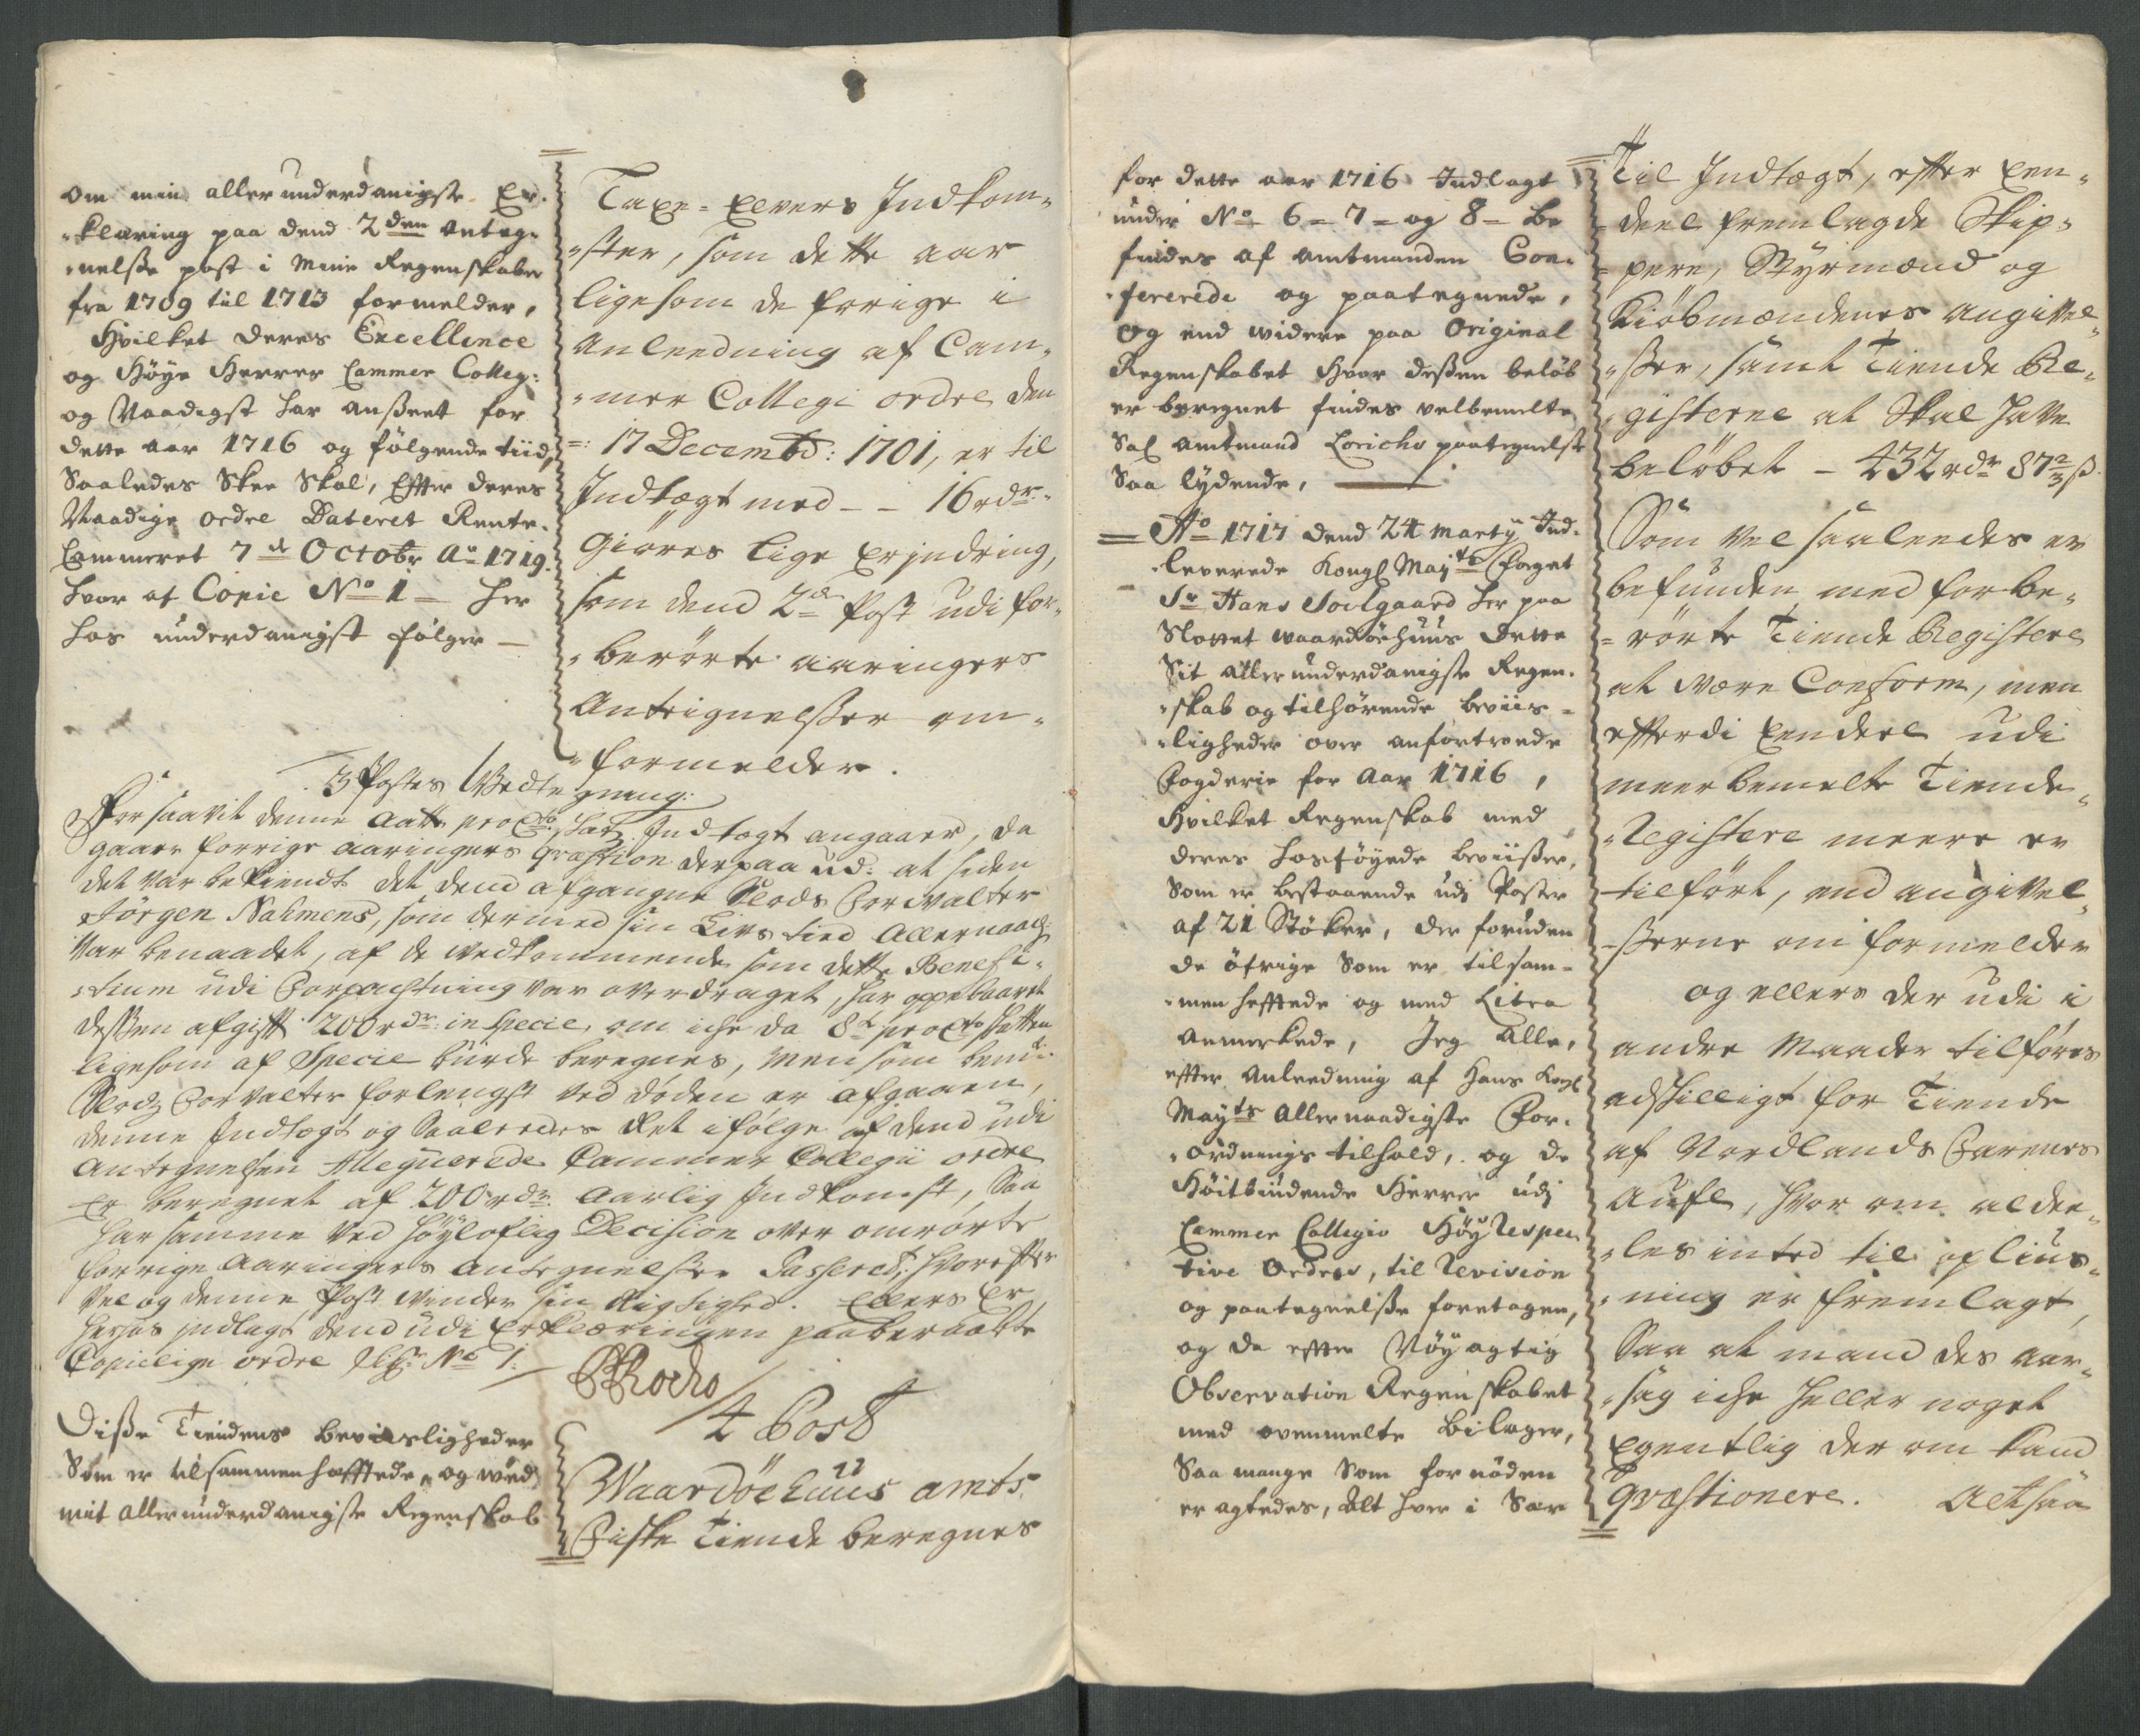 om min allerunderdanigste Er-
klaring paa dend 2den anteg-
nelsse post i mine Regenskaber
fra 1709 til 1713 formelder,
Hvilket deres Excellence
og Høye Herrer Cammer Colleg:
og Naadigst har anseet for
dette aar 1716 og følgende tiid,
Saaledes Skee Skal, efter deres
Naadige ordre Dateret Rente-
Cammeret 7de Octobr Ao 1719.
hvor af Copie No 1 - her
hos underdanigst følger -
Taxe-Elvers Indkom-
ster, som dette aar
ligesom de forige i
Anleedning af Cam-
mer Collegi ordre den
17 Decembr: 1701, er til
Indtægt med - - 16 rdr.
Giøres lige Erindring,
som dend 2de Post udi for-
berørte aaringers
Anteignelsser om-
formelder.
3 Postes Vedtegning:
Forsaavit denne Indtegt angaaer, da
gaaer forrige aaringers Qvæstion derpaa ud: at siden
det var bekiendt det dend afgangne Slods Forvalter
Jørgen Nahmens, som dermed sin Livs tied Allernaadigst
var benaadet, af de vedkommende som dette Benefi-
tium udi Forpachtning var overdraget, har oppebaaret
dessen afgift 200 rdr: in specie, om iche da
ligesom af Specie burde beregnes, men som bemte
Slods Forvalter forlengst ved døden er afgaaen,
denne Indtegt og Saaleedes Ret ifølge af dend udi
Antegnelsen Alleguerede Cammer Collegii ordre
Er beregnet af 200 rdr: Aarlig Indkomst, Saa
har samme ved høyloflig Decision over omrørte
forrige Aaringers Antegnelsser Passeret; hvorefter
vel og denne Post vinder sin Rigtighed. Ellers Er
herhos indlagt dend udi Erklæringen paaberaabte
Copielige ordre No 1.
4 Post
Disse Tiendens beviisligheder
Som er tilsammenhefftede, og wed
mit allerunderdanigste Regenskab
Waardøehuus amts
Fiske Tiende beregnes
for dette aar 1716 Indlagt
under No 6 - 7 - og 8 - be
findes af amtmanden Con-
fererede og paategnede,
og end widere paa Original
Regenskabet hvor dessen beløb
er beregnet findes velbemelte
Sal amtmand Lorichs paategnelse
Saa lydende,
Ao 1717 dend 24 Marty Ind-
leverede Kongl Mayts Foget
Sr Hans Soelgaard her paa
Slottet waardøehuus dette
Sit allerunderdanigste Regen-
skab og tilhørende beviis-
ligheder over anfortroede
Fogderie for Aar 1716,
Hvilket Regenskab med
deres hosføyede beviisser,
Som er bestaaende udj Poster
af 21 Støker, der foruden
de øfrige Som er tilsam-
men hefftede og med Litra
Anmerkede, Jeg alle,
effter Anleedning af Hans Kongl
Mayts Allernaadigste For-
ordnings tilhold, og de
Høitbiudende Herrer udj
Cammer Collegio Høy Respec
tive Ordres, til Revision
og paategnelsse foretagen,
og da effter Nøyagtig
Observation Regenskabet
med ovenmelte Bilager,
Saa mange Som fornøden
er agtedes, Alt hver i Sær
Til Indtægt, efter Een-
deel fremlagde Skip-
pere, Styrmænd og
Kiøbmændenes angivel-
sser, samt Tiende Re-
gisterne at Skal have
beløbet - 432 rdr 87 2/3 ß.
Som vel saaleedes er
befunden med forbe-
rørte Tiende Registere
at være Conform, men
efterdi Eendeel udi
meerbemelte Tiende-
Registere meere er
tilført, end angivel-
sserne om formelder
og ellers der udi i
andre Maader tilføres
adskilligt for Tiende
af Nordlands Farernes
Aufl, hvor om aldee-
les inted til oplius-
ning er fremlagt,
Saa at mand des aar-
sag iche heller noget
Egentlig der om kand
Qvæstionere. Altsaa